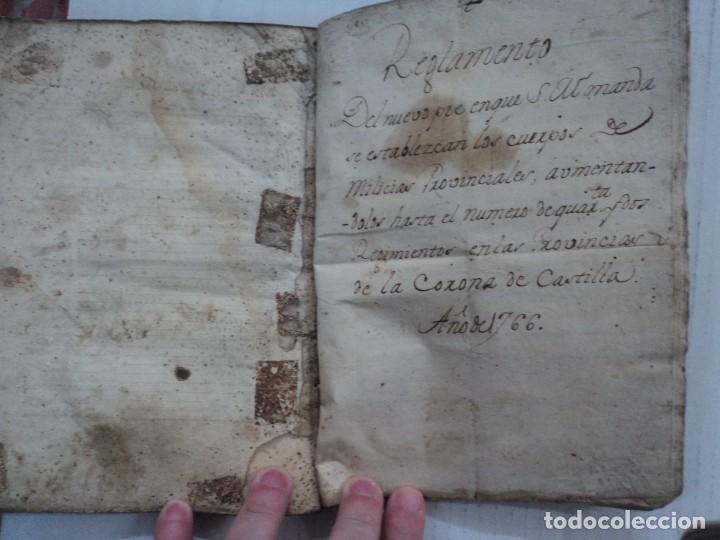 Reglamento
Del nuevo pie enque S. M. manda
se establezcan los cuerpos De
Milicias Provinciales, aumentan-
-dolos hasta el numero de quarta. y dos
Regimientos en las Provincias
de la Corona de Castilla.
Año de 1766.
todocoleccion
todocoleccion.net